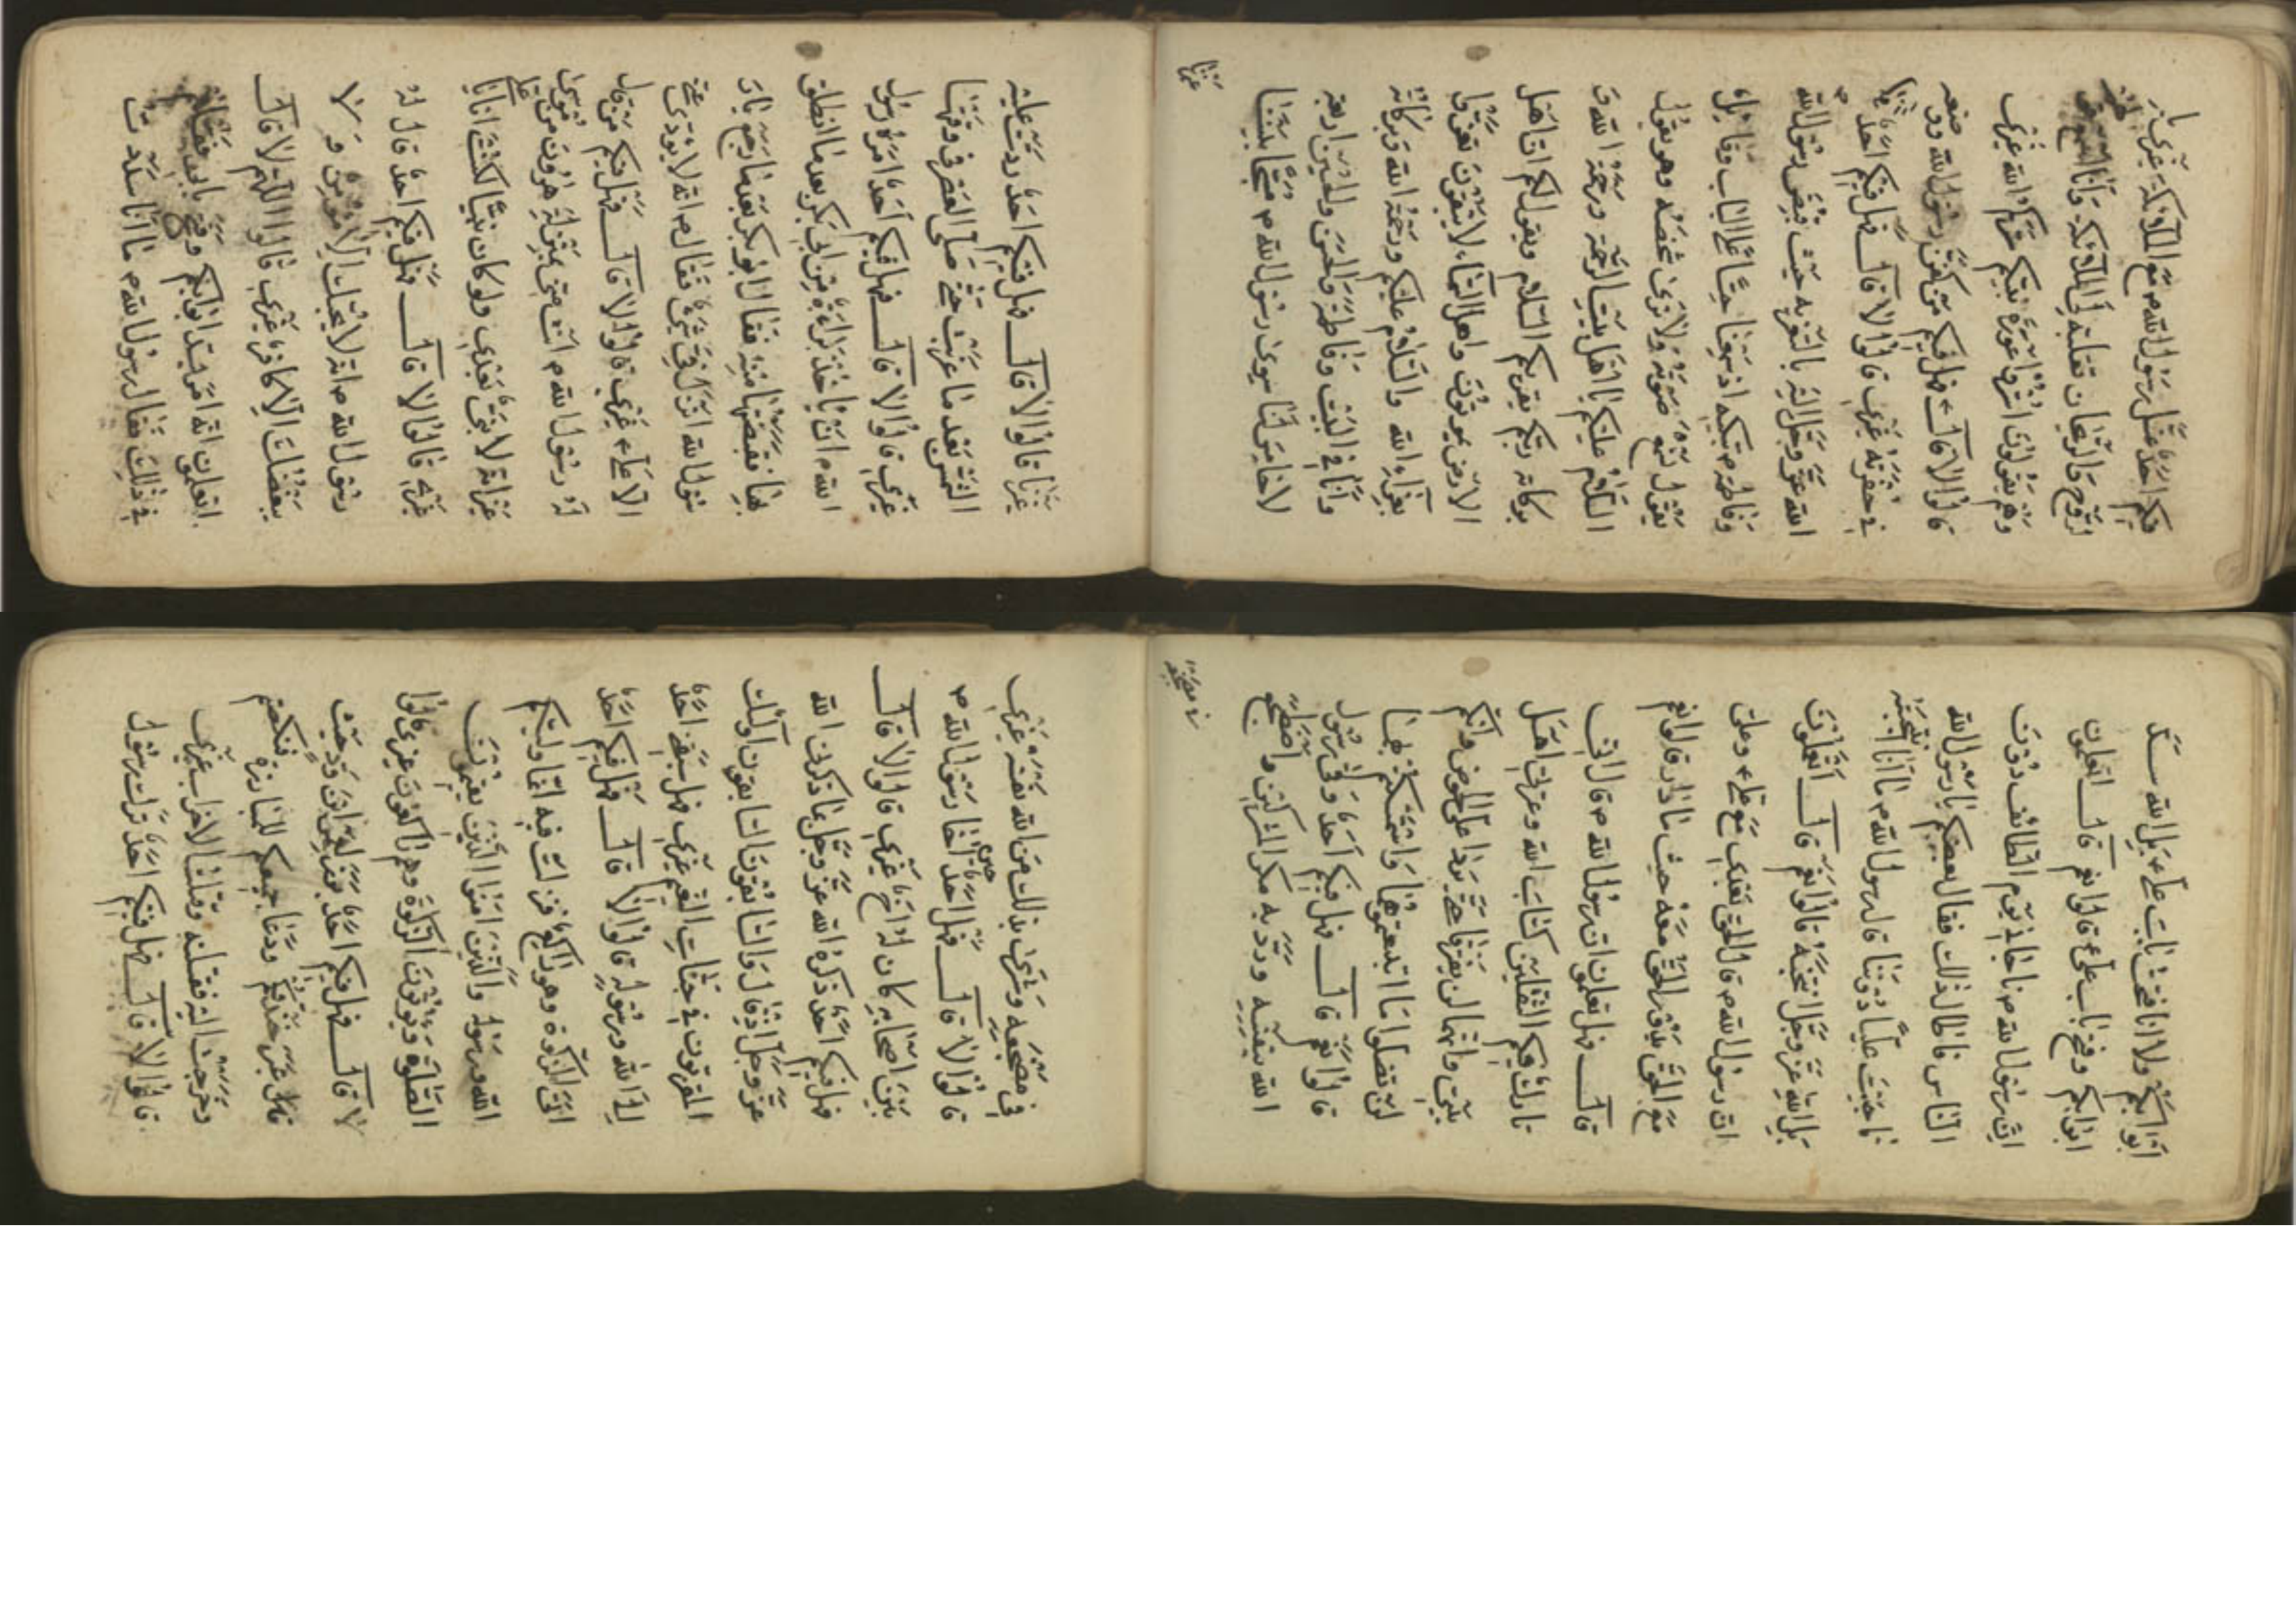 فيكم احد غسل رسول الله م مع الملائكة غيري با
لروح والريحان تقلبه لي الملائكة وانا اسمع
وهم يقولون استروا عورة نبيكم ستركم الله غيري
قالوا لا قال فهل فيكم من كفن رسول الله ووضعه
في حفرته غيري قالوا لا قال فهل فيكم احد
الله عز وجل اليه بالتعزية حيث قبض رسول الله م
وفاطمة م تبكيه اذ سمعنا حسا على الباب وقائلا
يقول نسمع صوته ولا نرى شخصه وهو يقول
السلام عليكم يا اهل بيت الرحمة ورحمة الله و
بركاته ربكم يقريكم السلام ويقول لكم ان اهل
الارض يموتون واهل السماء لا يبقون تعزوا
بعزاء الله والسلام عليكم ورحمة الله وبركاته
وانا في البيت وفاطمة والحسن والحسين اربعة
لا خامس لنا سوى رسول الله م مسجا بيننا
غيرنا
غيرنا قالوا لا قال فهل فيكم احد ردت عليه
الشمس بعد ما غربت حتى صلى العصر في وقتها
غيري قالوا لا قال فهل فيكم احد امره رسول
الله م ان ياخذ براءة من ابي بكر بعد ما انطلق
بها فقبضها منه فقال ابو بكر بعد ما رجع يا ر
سول الله انزل في شيء فقال م انه لا يؤدي عني
الا علي غيري قالوا لا قال فهل فيكم من قال
له رسول الله م انت مني بمنزلة هرون من موسى
غير انه لا نبي بعدي ولو كان نبيا لكنت انا يا علي
غيري قالوا لا قال فهل فيكم احد قال له
رسول الله م انه لا يحبك الا مؤمن و لا
يبغضك الا كافر غيري قالوا اللهم لا قال
اتعلمون انه امر بسد ابوابكم وفتح بابي فقلتم
في ذلك فقال رسول الله م ما انا سددت
ابوابكم ولا انا فتحت باب علي بل الله سد
ابوابكم وفتح باب علي قالوا نعم قال اتعلمون
ان رسول الله م ناجاني يوم الطائف دون
الناس فاطال ذلك فقال بعضكم يا رسول الله
ناجيت عليا دوننا قال رسول الله م ما انا انتجيته
بل الله عز وجل انتجيه قالوا نعم قال اتعلمون
ان رسول الله م قال الحق بعدي مع علي وعلي
مع الحق يدور الحق معه حيث ما دار قالوا نعم
قال فهل تعلمون ان رسول الله م قال اني
تارك فيكم الثقلين كتاب الله وعترتي اهل
بيتي وانهما لن يفترقا حتى يردا على الحوض وانكم
لن تضلوا ما اتبعتموها واستمسكتم بهما
قالوا نعم قال فهل فيكم احد وقى رسول
الله بنفسه ورد به مكر المشركين واضطجع
في مضجعه
في مضجعه وشرى بذلك من الله نفسه غيري
قالوا لا قال فهل احد اخا رسول الله م
بين اصحابه كان له اخ غيري قالوا لا قال
فهل فيكم احد ذكره الله عز وجل بما ذكرني الله
عز وجل اذ قال والسابقون السابقون اولئك
المقربون في جنات النعيم غيري فهل سبقني احد
الى الله ورسوله قالوا لا قال فهل فيكم احد
اتى الزكوة وهو راكع فنزلت فيه انما وليكم
الله ورسوله والذين امنوا الذين يقيمون
الصلوة ويؤتون الزكوة وهم راكعون غيري قالوا
لا قال فهل فيكم احد برز لعمرو بن ود حيث
خندقكم ودعا جميعكم للمبارزة فنكصتم
وخرجت اليه فقتلته وقتلنا الاحزاب غيري
قالوا لا قال فهل فيكم احد ترك رسول